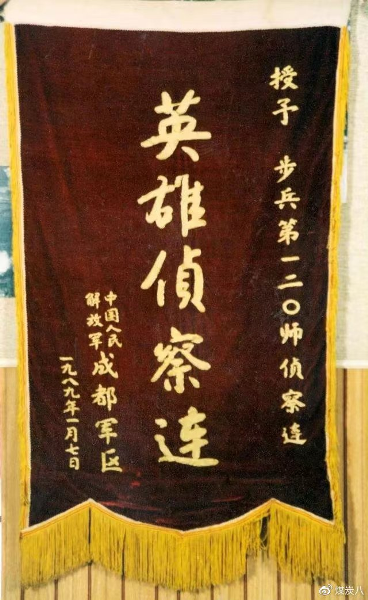 授予 步兵第一二〇师侦察连
英雄侦察连
中国人民
解放军
成都军区
一九八九年一月七日
@煤炭八